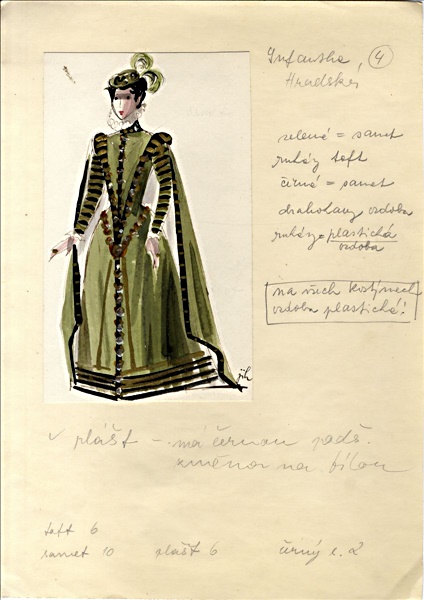 Infantka, 4
Hradske
zelené = samt
taft
černé = samet
drahokamy ozdoba
= plastická
ozdoba
na všech kostýmech
ozdoba plastická!
v plášť – má černou podš.
změna na bílou
jih
taft 6
samet 10 plášť 6 černý s. 2